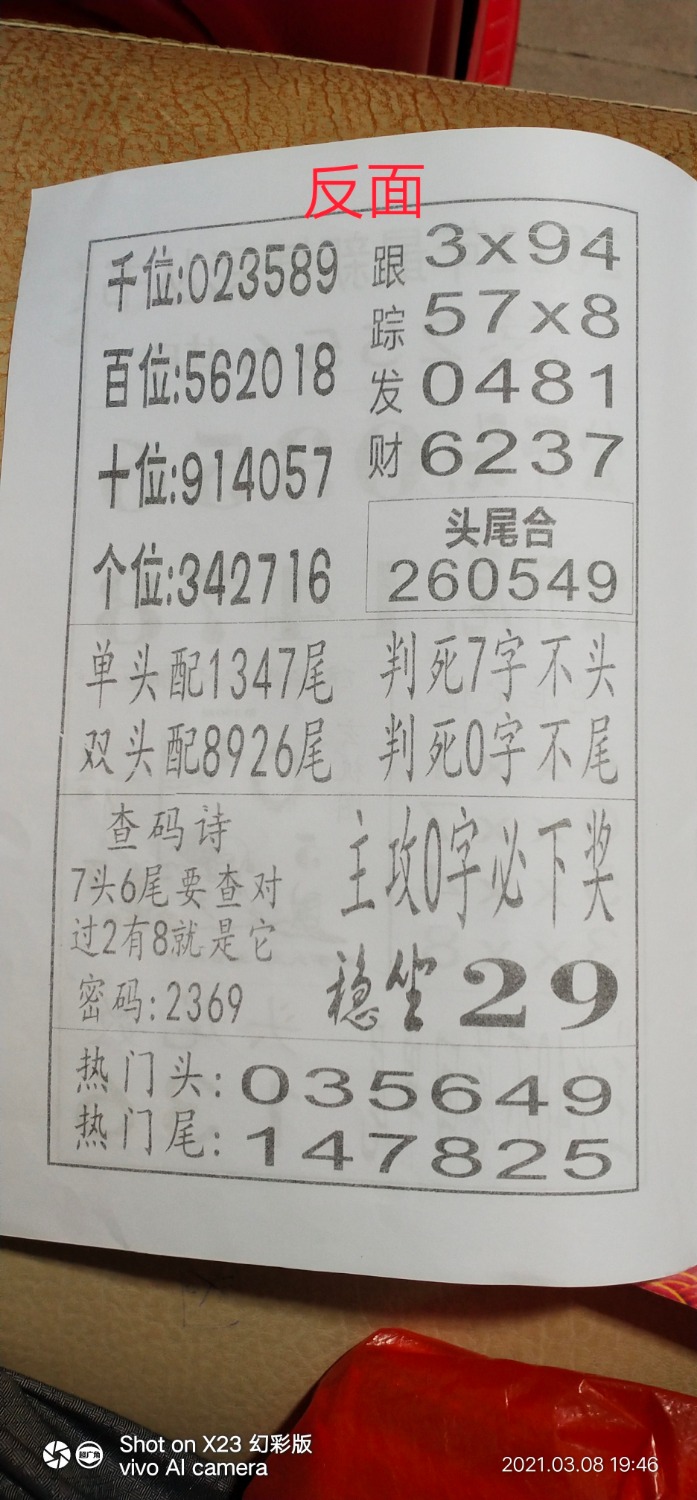 反面
千位:023589
百位:562018
十位:914057
个位:342716
跟踪发财
3x94
57x8
0481
6237
头尾合
260549
单头配1347尾
双头配8926尾
判死7字不头
判死0字不尾
查码诗
7头6尾要查对
过2有8就是它
密码:2369
主攻0字必下奖
稳坐29
热门头:035649
热门尾:147825
Shot on X23 幻彩版
vivo AI camera
超广角
2021.03.08 19:46